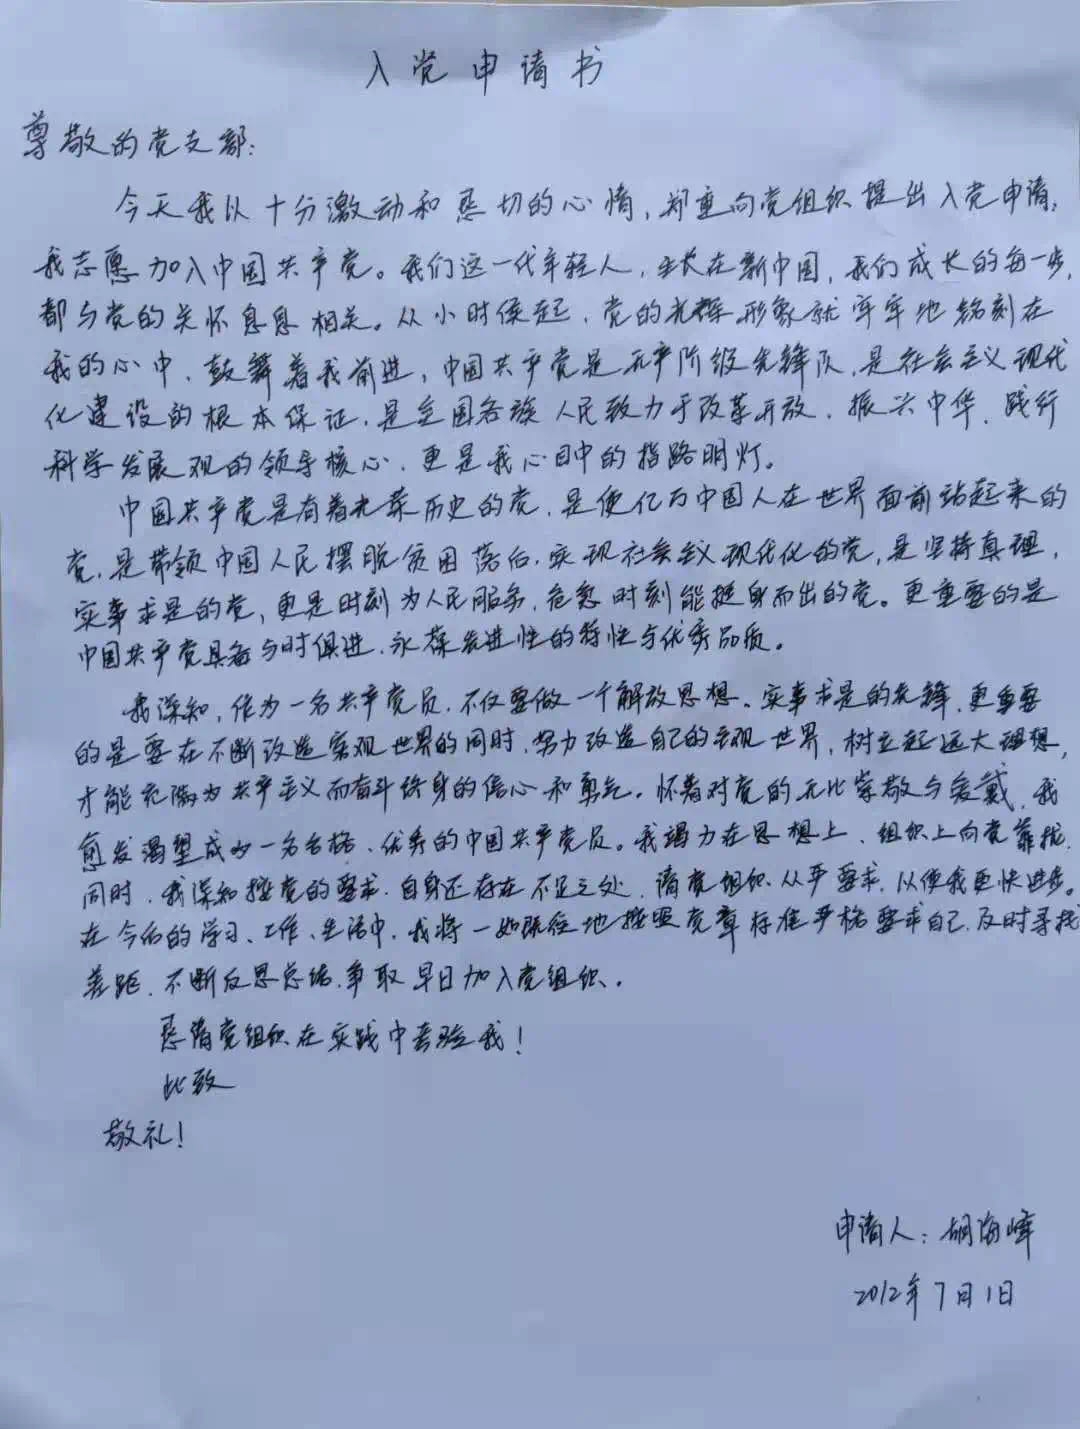 入党申请书
尊敬的党支部:
今天我以十分激动和恳切的心情,郑重向党组织提出入党申请,
我志愿加入中国共产党。我们这一代年轻人,生长在新中国,我们成长的每一步,
都与党的关怀息息相关。从小时候起,党的光辉形象就牢牢地铭刻在
我的心中,鼓舞着我前进,中国共产党是无产阶级先锋队,是社会主义现代
化建设的根本保证,是全国各族人民致力于改革开放、振兴中华、践行
科学发展观的领导核心,更是我心目中的指路明灯。
中国共产党是有着光荣历史的党,是使亿万中国人在世界面前站起来的
党,是带领中国人民摆脱贫困落后,实现社会主义现代化的党,是坚持真理,
实事求是的党,更是时刻为人民服务,危急时刻能挺身而出的党。更重要的是
中国共产党具备与时俱进,永葆先进性的特性与优秀品质。
我深知,作为一名共产党员,不仅要做一个解放思想、实事求是的先锋,更重要
的是要在不断改造客观世界的同时,努力改造自己的主观世界,树立起远大理想,
才能充满为共产主义而奋斗终身的信心和勇气。怀着对党的无比崇敬与爱戴,我
愈发渴望成为一名合格、优秀的中国共产党员。我竭力在思想上、组织上向党靠拢,
同时,我深知按党的要求,自身还存在不足之处,请党组织从严要求,以便我更快进步。
在今后的学习、工作、生活中,我将一如既往地按照党章标准严格要求自己,及时寻找
差距,不断反思总结,争取早日加入党组织。
恳请党组织在实践中考验我!
此致
敬礼!
申请人:胡海峰
2012年7月1日